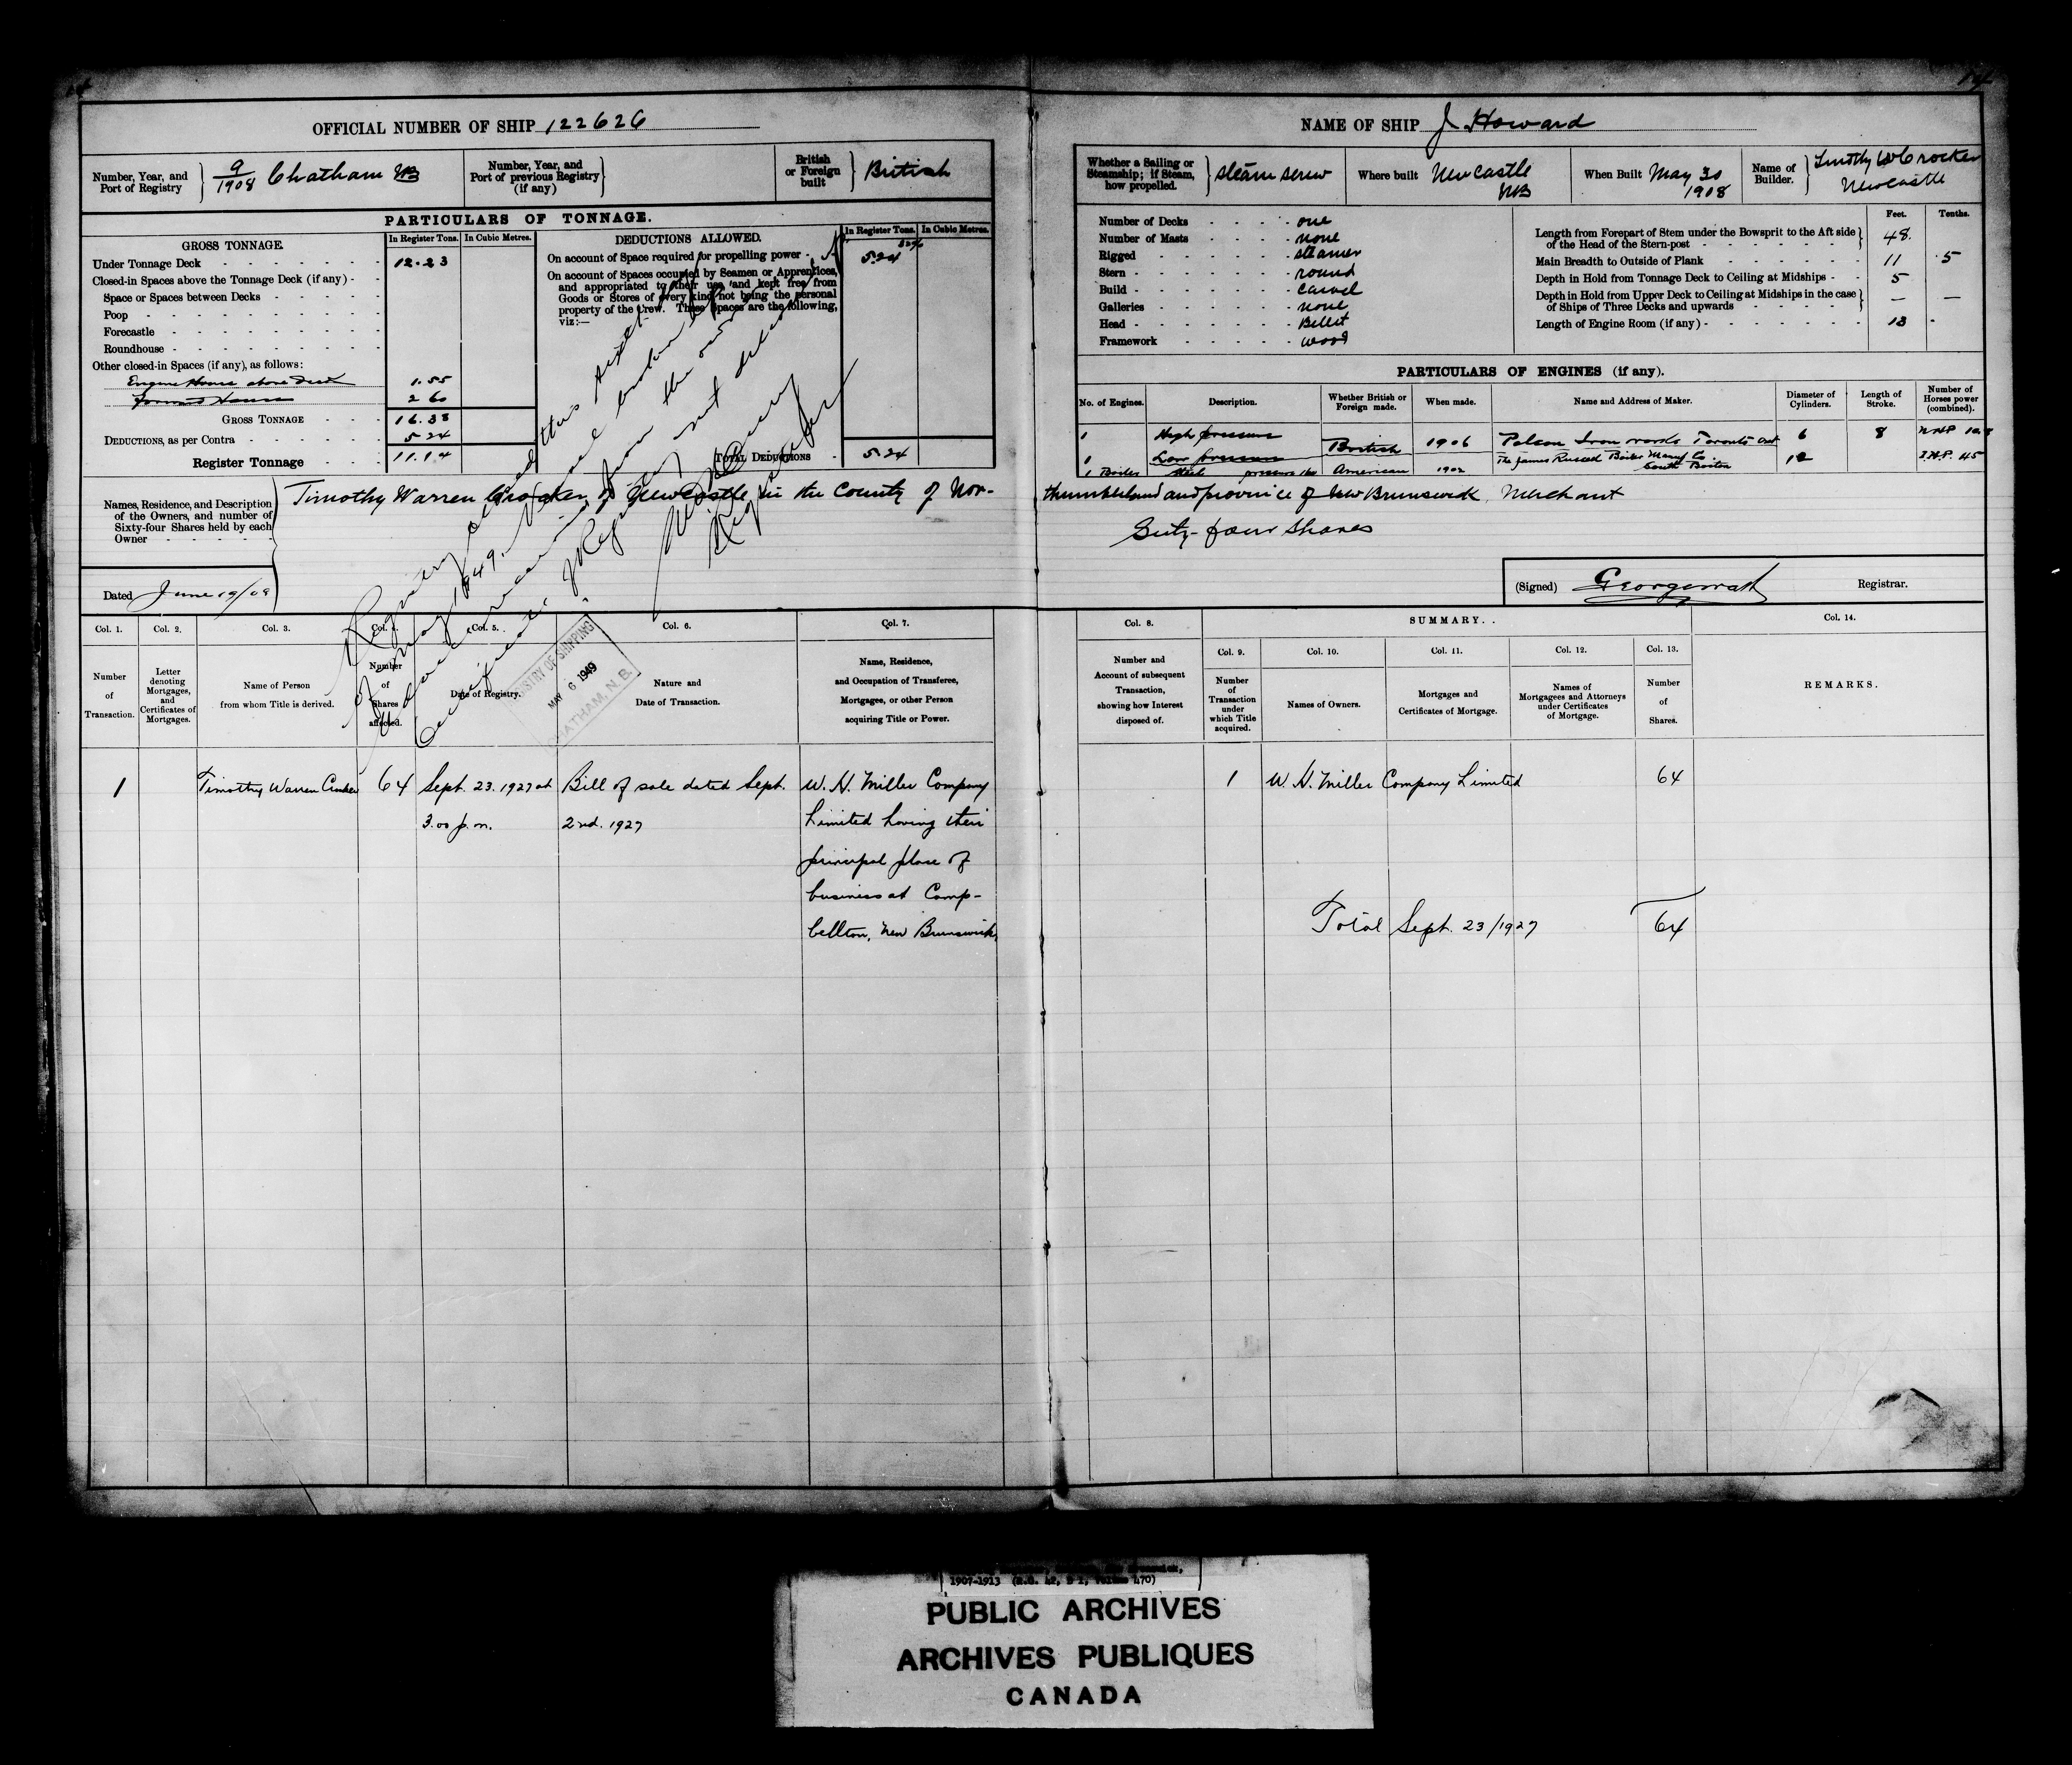 14
OFFICIAL NUMBER OF SHIP 122626
Number, Year, and Port of Registry 9/1908 Chatham NB
Number, Year, and Port of previous Registry (if any)
British or Foreign built British
PARTICULARS OF TONNAGE.
GROSS TONNAGE. In Register Tons. In Cubic Metres.
Under Tonnage Deck 12.23
Closed-in Spaces above the Tonnage Deck (if any)
Space or Spaces between Decks
Poop
Forecastle
Roundhouse
Other closed-in Spaces (if any), as follows:
Engine House above Deck 1.55
Forward House 2 60
GROSS TONNAGE 16.38
DEDUCTIONS, as per Contra 5.24
Register Tonnage 11.14
DEDUCTIONS ALLOWED. In Register Tons. In Cubic Metres.
On account of Space required for propelling power 32% 5.24
On account of Spaces occupied by Seamen or Apprentices,
and appropriated to their use, and kept free from
Goods or Stores of every kind not being the personal
property of the Crew. These Spaces are the following,
viz:—
TOTAL DEDUCTIONS 5.24
Names, Residence, and Description
of the Owners, and number of
Sixty-four Shares held by each
Owner
Timothy Warren Crocker of Newcastle in the County of Nor-
Dated June 19/08
Registry closed this sixth
of May, 1949. Vessel broken up
Advice received from the owner
Certificate of Registry not delivered
Registrar
REGISTRY OF SHIPPING
MAY 6 1949
CHATHAM, N. B.
14
NAME OF SHIP J Howard
Whether a Sailing or Steamship; if Steam, how propelled. steam screw
Where built Newcastle NB
When Built May 30 1908
Name of Builder. Timothy W Crocker Newcastle
Number of Decks one
Number of Masts none
Rigged steamer
Stern round
Build carvel
Galleries none
Head Billet
Framework wood
Feet. Tenths.
Length from Forepart of Stem under the Bowsprit to the Aft side of the Head of the Stern-post 48.
Main Breadth to Outside of Plank 11 .5
Depth in Hold from Tonnage Deck to Ceiling at Midships 5
Depth in Hold from Upper Deck to Ceiling at Midships in the case of Ships of Three Decks and upwards — —
Length of Engine Room (if any) 13 -
PARTICULARS OF ENGINES (if any).
No. of Engines. Description. Whether British or Foreign made. When made. Name and Address of Maker. Diameter of Cylinders. Length of Stroke. Number of Horses power (combined).
1 High pressure British 1906 Polson Iron works Toronto Ont 6 8 NHP
1 Low pressure 12 I.H.P. 45
1 Boiler steel pressure American 1902 The James Russell Boiler Manuf Co. South Boston
thumberland and province of New Brunswick, Merchant
Sixty-four Shares
(Signed) Registrar.
Col. 1. Col. 2. Col. 3. Col. 4. Col. 5. Col. 6. Col. 7.
Number of Transaction.
Letter denoting Mortgages, and Certificates of Mortgages.
Name of Person from whom Title is derived.
Number of Shares affected.
Date of Registry.
Nature and Date of Transaction.
Name, Residence, and Occupation of Transferee, Mortgages, or other Person acquiring Title or Power.
1 Timothy Warren Crocker 64 Sept. 23. 1927 at Bill of sale dated Sept. W. H. Miller Company
3.00 p.m. 2nd. 1927 Limited having their
principal place of
business at Camp-
bellton, New Brunswick,
Col. 8. SUMMARY. Col. 14.
Col. 9. Col. 10. Col. 11. Col. 12. Col. 13.
Number and Account of subsequent Transaction, showing how Interest disposed of.
Number of Transaction under which Title acquired.
Names of Owners.
Mortgages and Certificates of Mortgage.
Names of Mortgagees and Attorneys under Certificates of Mortgage.
Number of Shares.
REMARKS.
1 W. H. Miller Company Limited 64
Total Sept. 23/1927 64
1907-1913
PUBLIC ARCHIVES
ARCHIVES PUBLIQUES
CANADA